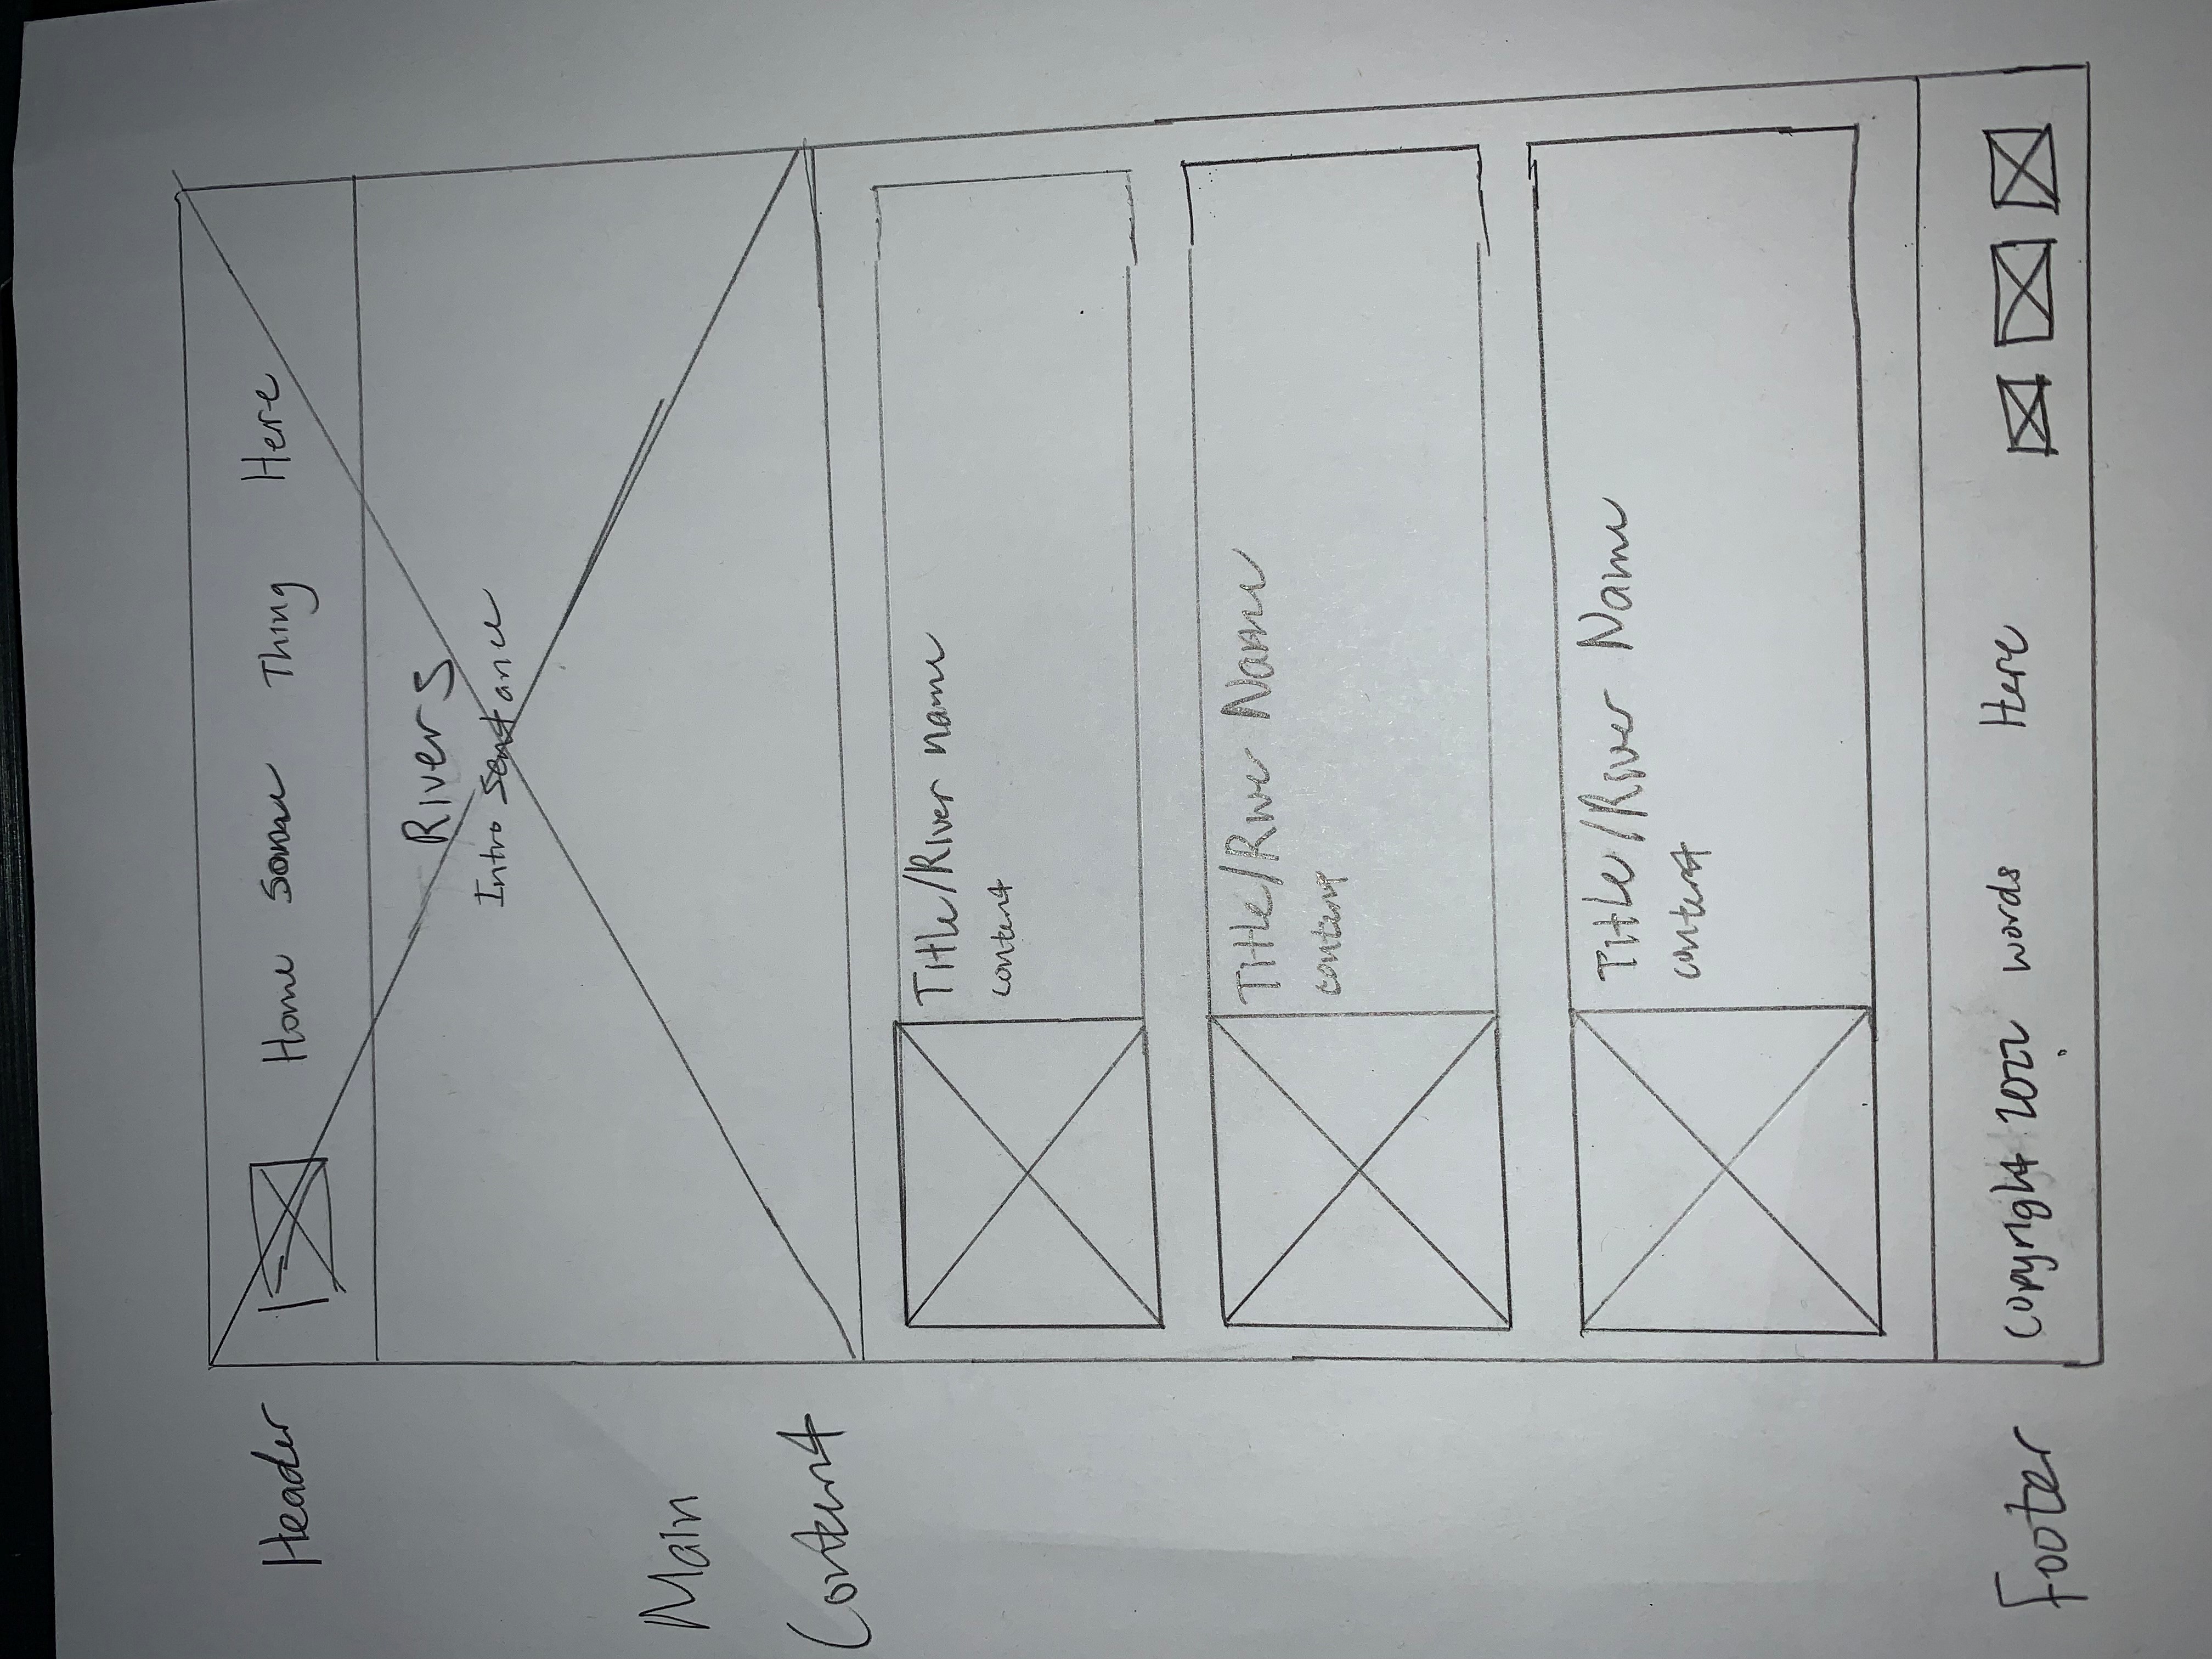 Header
Home Some Thing Here
Rivers
Intro Sentance
Main
Content
Title/River name
content
Title/River Name
content
Title/River Name
content
Footer
Copyright 2022 words Here